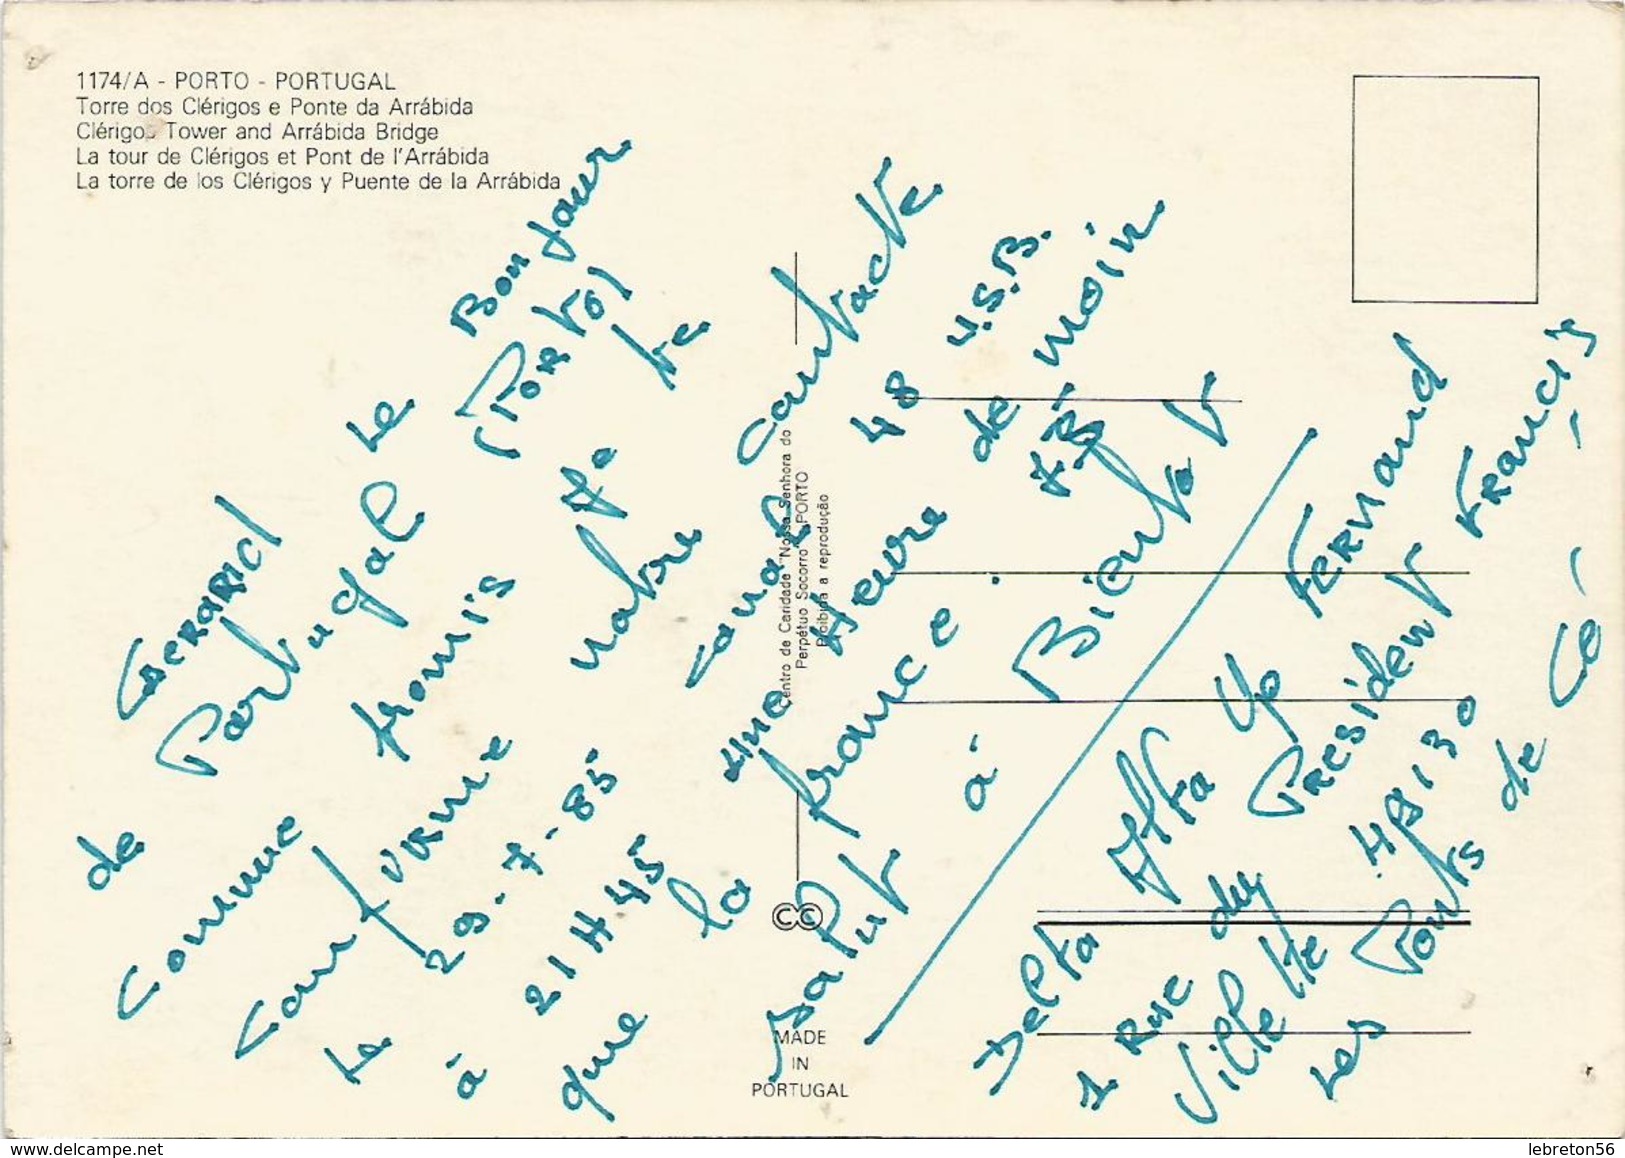 1174/A - PORTO - PORTUGAL
Torre dos Clérigos e Ponte da Arrábida
Clérigos Tower and Arrábida Bridge
La tour de Clérigos et Pont de l'Arrábida
La torre de los Clérigos y Puente de la Arrábida
Bonjour
de GERARD Le
Portugal (Porto)
Comme promis je te
Confirme notre contacte
Le 29-7-85 canal 48 U.S.B.
à 21 H 45 une Heure de moin
que la france. 73
salut à Bientot
Delta Alfa Yo FERNAND
1 Rue du President FRANCIS
Villette 49130
Les Ponts de Cé
Centro de Caridade "Nossa Senhora do
Perpétuo Socorro" PORTO
Proibida a reprodução
CC
MADE
IN
PORTUGAL
www.delcampe.net
lebreton56